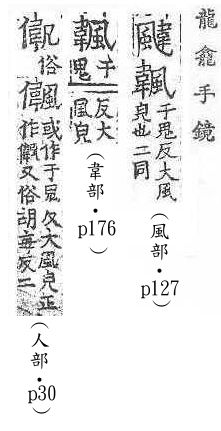 龍龕手鏡
颹
于鬼反大風
皃也二同
（風部・p127）
于鬼
反大
風皃
（韋部・p176）
俗
或作于鬼反大風皃正
作又俗胡反二
（人部・p30）